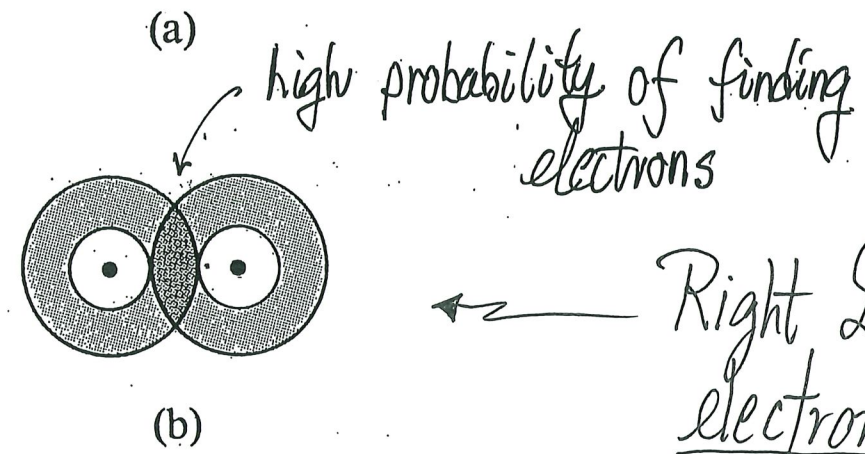 (a)
high probability of finding
electrons
Right
(b)